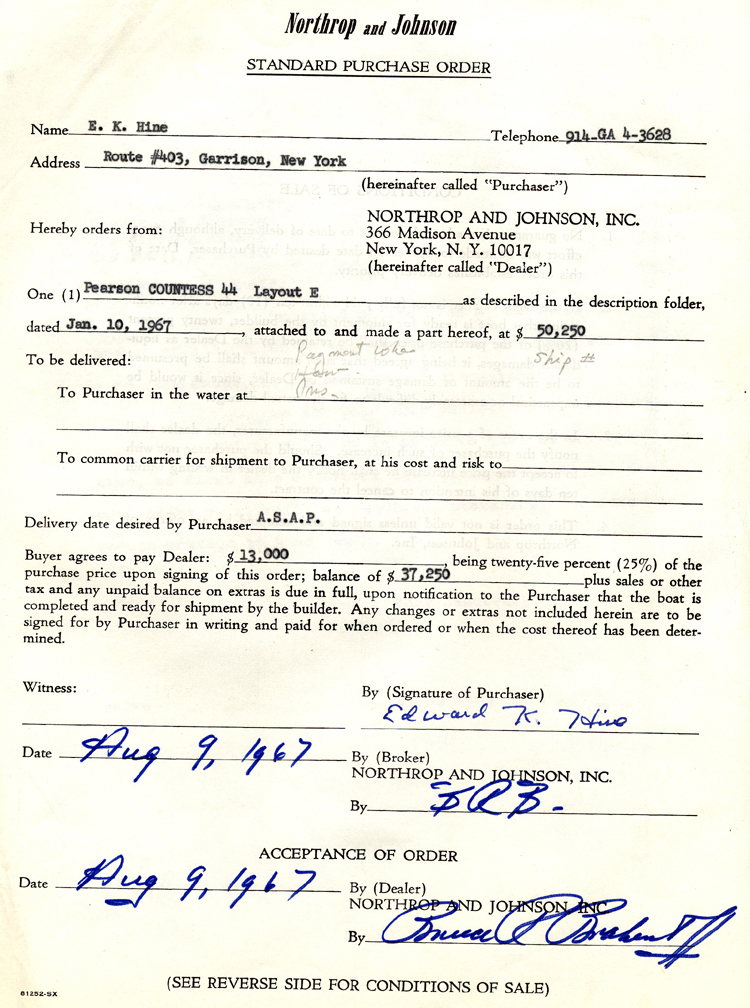 Northrop and Johnson
STANDARD PURCHASE ORDER
Name E. K. Hine Telephone 914-GA 4-3628
Address Route #403, Garrison, New York
(hereinafter called "Purchaser")
Hereby orders from: NORTHROP AND JOHNSON, INC.
366 Madison Avenue
New York, N. Y. 10017
(hereinafter called "Dealer")
One (1) Pearson COUNTESS 44 Layout E as described in the description folder,
dated Jan. 10, 1967, attached to and made a part hereof, at $ 50,250
Payment when Ship #
To be delivered: How
To Purchaser in the water at Ins.
To common carrier for shipment to Purchaser, at his cost and risk to
Delivery date desired by Purchaser A.S.A.P.
Buyer agrees to pay Dealer: $ 13,000, being twenty-five percent (25%) of the
purchase price upon signing of this order; balance of $ 37,250 plus sales or other
tax and any unpaid balance on extras is due in full, upon notification to the Purchaser that the boat is
completed and ready for shipment by the builder. Any changes or extras not included herein are to be
signed for by Purchaser in writing and paid for when ordered or when the cost thereof has been deter-
mined.
Witness: By (Signature of Purchaser)
Edward K. Hine
Date Aug 9, 1967 By (Broker)
NORTHROP AND JOHNSON, INC.
By
ACCEPTANCE OF ORDER
Date Aug 9, 1967 By (Dealer)
NORTHROP AND JOHNSON, INC
By Bruce
(SEE REVERSE SIDE FOR CONDITIONS OF SALE)
81252-SX